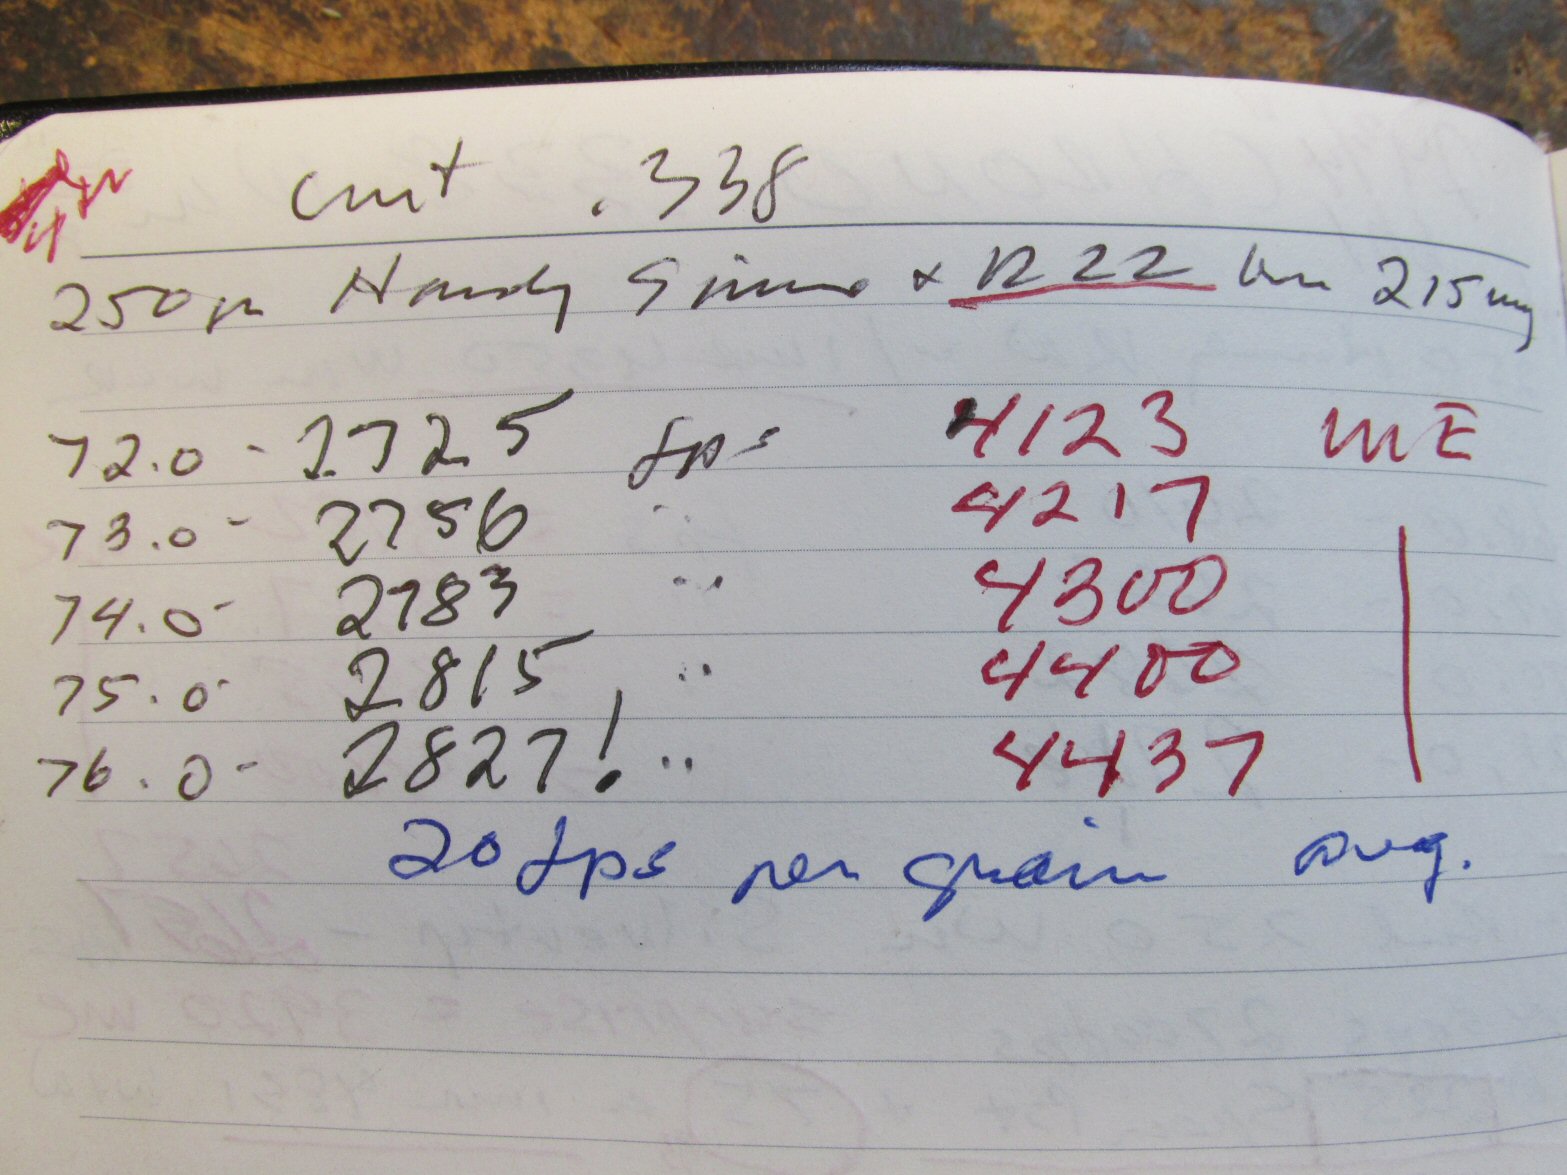 .338
250 gr Hornady + R 22 215 mag
72.0 - 2725 fps 4123 ME
73.0 - 2756 " 4217
74.0 - 2783 " 4300
75.0 - 2815 " 4400
76.0 - 2827! " 4437
20 fps per grain avg.